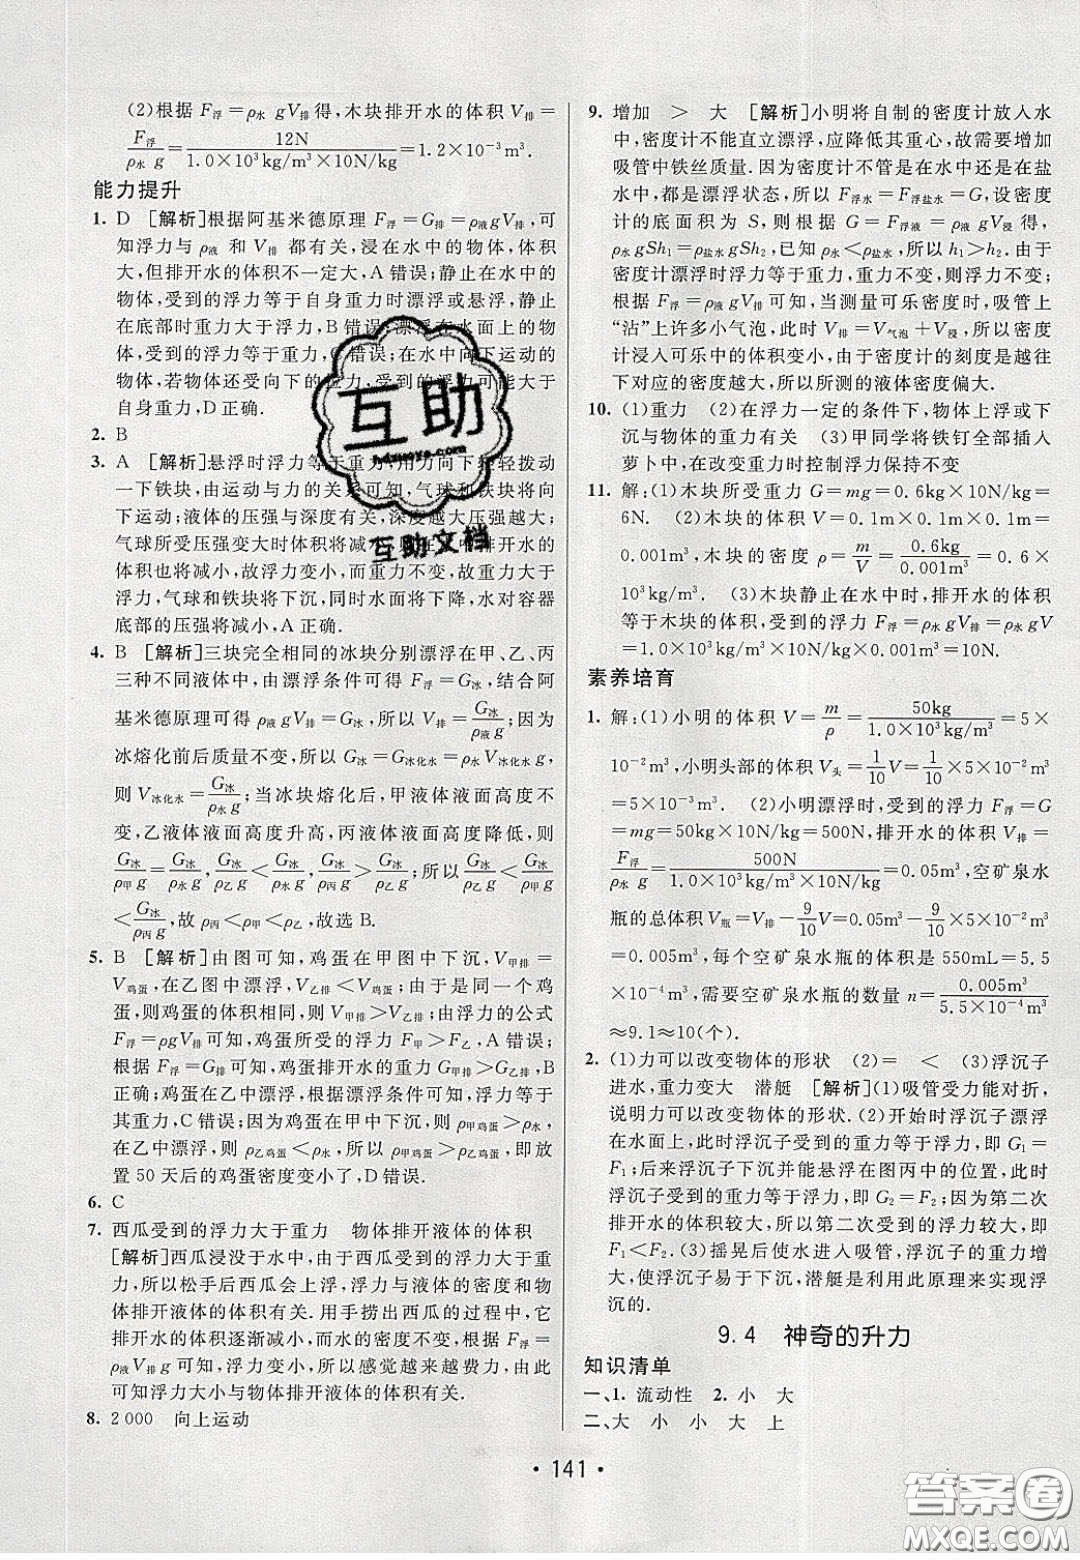 (2)根据 F浮＝ρ水 gV排得,木块排开水的体积 V排＝
F浮/ρ水 g＝12N/1.0×10³kg/m³×10N/kg＝1.2×10⁻³m³.
能力提升
1. D [解析]根据阿基米德原理 F浮＝G排＝ρ液gV排,可
知浮力与 ρ液 和 V排 都有关,浸在水中的物体,体积
大,但排开水的体积不一定大,A 错误;静止在水中的
物体,受到的浮力等于自身重力时漂浮或悬浮,静止
在底部时重力大于浮力,B 错误;漂浮在水面上的物
体,受到的浮力等于重力,C 错误;在水中向下运动的
物体,若物体还受向下的拉力,受到的浮力可能大于
自身重力,D 正确.
2. B
3. A [解析]悬浮时浮力等于重力,用力向下轻轻拨动
一下铁块,由运动与力的关系可知,气球和铁块将向
下运动;液体的压强与深度有关,深度越大压强越大;
气球所受压强变大时体积将减小,在水中排开水的体
积也将减小,故浮力变小,而重力不变,故重力大于
浮力,气球和铁块将下沉,同时水面将下降,水对容器
底部的压强将减小,A 正确.
4. B [解析]三块完全相同的冰块分别漂浮在甲、乙、丙
三种不同液体中,由漂浮条件可得 F浮＝G冰,结合阿
基米德原理可得 ρ液 gV排＝G冰,所以 V排＝G冰/ρ液 g;因为
冰熔化前后质量不变,所以 G冰＝G冰化水＝ρ水V冰化水g,
则 V冰化水＝G冰/ρ水 g;当冰块熔化后,甲液体液面高度不
变,乙液体液面高度升高,丙液体液面高度降低,则
G冰/ρ甲 g＝G冰/ρ水 g,G冰/ρ乙 g＜G冰/ρ水 g,G冰/ρ丙 g＞G冰/ρ水 g;所以G冰/ρ乙 g＜G冰/ρ甲 g
＜G冰/ρ丙 g,故 ρ丙＜ρ甲＜ρ乙,故选 B.
5. B [解析]由图可知,鸡蛋在甲图中下沉,V甲排＝
V鸡蛋,在乙图中漂浮,V乙排＜V鸡蛋;因为是同一个鸡
蛋,则鸡蛋的体积相同,则 V甲排＞V乙排;由浮力的公式
F浮＝ρgV排 可知,鸡蛋所受的浮力 F甲＞F乙,A 错误;
根据 F浮＝G排 可知,鸡蛋排开水的重力 G甲排＞G乙排,B
正确;鸡蛋在乙中漂浮,根据漂浮条件可知,鸡蛋的浮
力等于重力,C 错误;因为鸡蛋在甲中下沉,则 ρ甲鸡蛋＞ρ水,
在乙中漂浮,则 ρ乙鸡蛋＜ρ水,所以 ρ甲鸡蛋＞ρ乙鸡蛋,即放
置 50 天后的鸡蛋密度变小了,D 错误.
6. C
7. 西瓜受到的浮力大于重力 物体排开液体的体积
[解析]西瓜浸没于水中,由于西瓜受到的浮力大于重
力,所以松手后西瓜会上浮,浮力与液体的密度和物
体排开液体的体积有关. 用手捞出西瓜的过程中,它
排开水的体积逐渐减小,而水的密度不变,根据 F浮
＝ρ液V排 g 可知,浮力变小,所以感觉越来越费力,由此
可知浮力大小与物体排开液体的体积有关.
8. 2 000 向上运动
9. 增加 ＞ 大 [解析]小明将自制的密度计放入水
中,密度计不能直立漂浮,应降低其重心,故需要增加
吸管中铁丝质量. 因为密度计不管是在水中还是在盐
水中,都是漂浮状态,所以 F浮水＝F浮盐水＝G,设密度
计的底面积为 S,则根据 G＝F浮液＝ρ液gV浸 可得,
ρ水gSh₁＝ρ盐水gSh₂,已知 ρ水＜ρ盐水,所以 h₁＞h₂.由于
密度计漂浮时浮力等于重力,重力不变,则浮力不变;
根据 F浮＝ρ液gV排 可知,当测量可乐密度时,吸管上
“沾”上许多小气泡,此时 V排＝V气泡＋V浸,所以密度
计浸入可乐中的体积变小,由于密度计的刻度是越往
下对应的密度越大,所以所测的液体密度偏大.
10. (1)重力 (2)在浮力一定的条件下,物体上浮或下
沉与物体的重力有关 (3)甲同学将铁钉全部插入
萝卜中,在改变重力时控制浮力保持不变
11. 解:(1)木块所受重力 G＝mg＝0.6kg×10N/kg＝
6N. (2)木块的体积 V＝0.1m×0.1m×0.1m＝
0.001m³,木块的密度 ρ＝m/V＝0.6kg/0.001m³＝0.6×
10³kg/m³. (3)木块静止在水中时,排开水的体积
等于木块的体积,受到的浮力 F浮＝ρ水 gV排＝ρ水gV
＝1.0×10³kg/m³×10N/kg×0.001m³＝10N.
素养培育
1. 解:(1)小明的体积 V＝m/ρ＝50kg/1.0×10³kg/m³＝5×
10⁻²m³,小明头部的体积 V头＝1/10V＝1/10×5×10⁻²m³
＝5×10⁻³m³. (2)小明漂浮时,受到的浮力 F浮＝G
＝mg＝50kg×10N/kg＝500N,排开水的体积 V排＝
F浮/ρ水 g＝500N/1.0×10³kg/m³×10N/kg＝0.05m³,空矿泉水
瓶的总体积 V瓶＝V排－9/10V＝0.05m³－9/10×5×10⁻²m³
＝0.005m³,每个空矿泉水瓶的体积是 550mL＝5.5
×10⁻⁴m³,需要空矿泉水瓶的数量 n＝0.005m³/5.5×10⁻⁴m³
≈9.1≈10(个).
2. (1)力可以改变物体的形状 (2)＝ ＜ (3)浮沉子
进水,重力变大 潜艇 [解析](1)吸管受力能对折,
说明力可以改变物体的形状. (2)开始时浮沉子漂浮
在水面上,此时浮沉子受到的重力等于浮力,即 G₁＝
F₁;后来浮沉子下沉并能悬浮在图丙中的位置,此时
浮沉子受到的重力与浮力相等,即 G₂＝F₂;因为第二次
排开水的体积较大,所以第二次受到的浮力较大,即
F₁＜F₂. (3)摇晃后使水进入吸管,浮沉子的重力增
大,使浮沉子易于下沉,潜艇是利用此原理来实现浮
沉的.
9.4 神奇的升力
知识清单
一、1. 流动性 2. 小 大
二、大 小 小 大 上
• 141 •
互助
hdzuoye.com
互助文档
答案圈
MXQE.COM